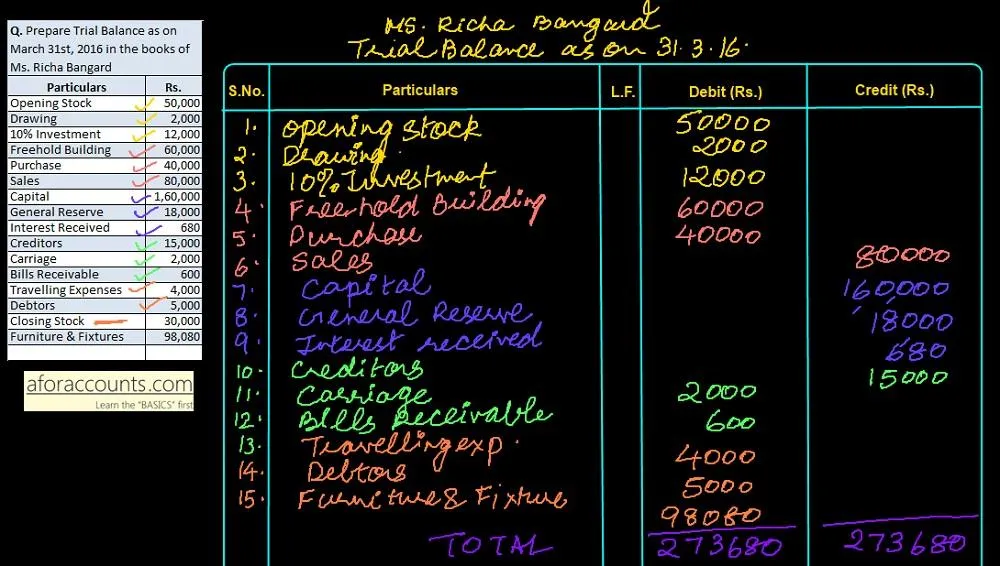 Q. Prepare Trial Balance as on
March 31st, 2016 in the books of
Ms. Richa Bangard
Particulars Rs.
Opening Stock 50,000
Drawing 2,000
10% Investment 12,000
Freehold Building 60,000
Purchase 40,000
Sales 80,000
Capital 1,60,000
General Reserve 18,000
Interest Received 680
Creditors 15,000
Carriage 2,000
Bills Receivable 600
Travelling Expenses 4,000
Debtors 5,000
Closing Stock 30,000
Furniture & Fixtures 98,080
aforaccounts.com
Learn the "BASICS" first
MS. Richa Bangard
Trial Balance as on 31.3.16.
S.No. Particulars L.F. Debit (Rs.) Credit (Rs.)
1. Opening stock 50000
2. Drawing 2000
3. 10% Investment 12000
4. Freehold Building 60000
5. Purchase 40000
6. Sales 80000
7. Capital 160,000
8. General Reserve 18000
9. Interest received 680
10. Creditors 15000
11. Carriage 2000
12. Bills Receivable 600
13. Travelling exp. 4000
14. Debtors 5000
15. Furniture & Fixture 98080
TOTAL 273680 273680